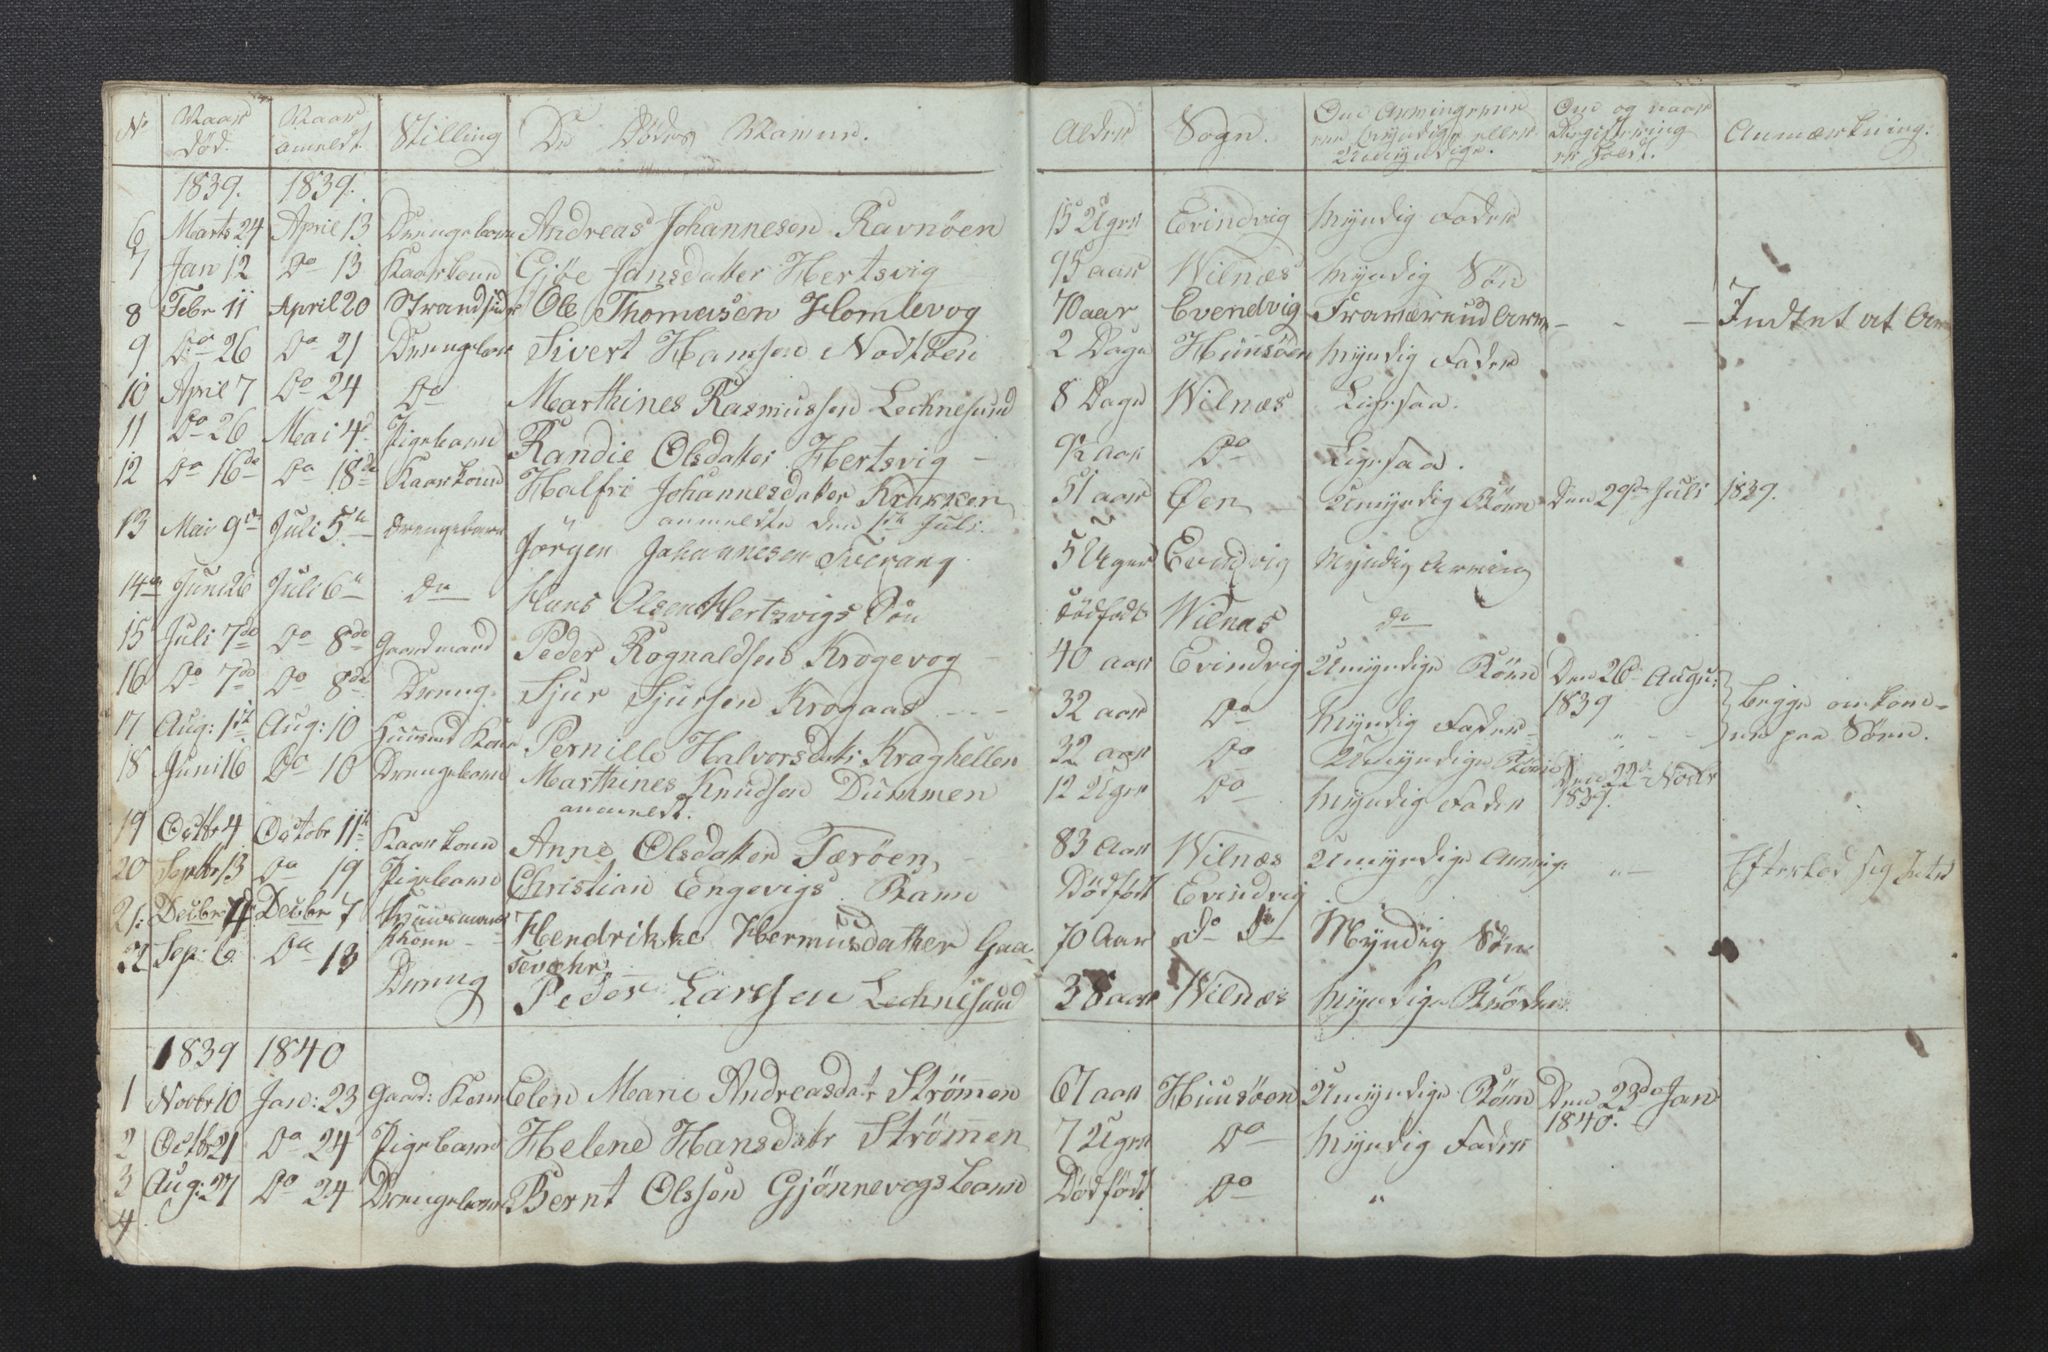 No Naar Død. Naar anmeldt. Stilling De Dødes Navne. Alder Sogn. Om Arvingerne ere Myndige eller Umyndige. Om og naar Registering er skeet. Anmærkning.
1839. 1839.
6 Marts 24 April 13 Drengebarn Andreas Johannesen Ravnöen 15 Uger Evindvig Myndig Fader
7 Jan 12 Do 13 Kaarkone Gjöe Jansdatter Hertsvig 95 aar Wilnæs Myndig Sön
8 Febr 11 April 20 Strandsider Ole Thomasen Homlevog 70 aar Evendvig Indtet at Arve
9 Do 26 Do 21 Drengebarn Sivert Hansen Nodtöen 2 Dage Huusöen Myndig Fader
10 April 7 Do 24 Do Marthines Rasmussen Lechnesund 8 Dage Wilnæs Ligesaa.
11 Do 26 Mai 4 Pigebarn Randie Olsdatter Hertsvig ½ aar Do Ligesaa.
12 Do 16de Do 18de Kaarkone Halfri Johannesdatter Krakken 51 aar Øen Umyndig Börn Den 29de Juli 1839.
anmeldte den 1ste Juli.
13 Mai 9de Juli 5te Drengebarn Jørgen Johannesen Tverang 5 Uger Evindvig Myndig Arving
14 Juni 26 Juli 6te do Hans Olsen Hertsvigs Sön dödfödt Wilnæs do
15 Juli 7de Do 8de Gaardmand Peder Rognaldsen Krogevog 40 aar Evindvig Umyndige Börn Den 26 August 1839
16 Do 7de Do 8de Dreng. Sjur Sjursen Krogaas 32 aar Do Myndig Fader begge omkomne paa Söen.
17 Aug: 1ste Aug: 10 Huusmd Kone Pernille Halvorsdatr Kraghellen 32 aar Do Umyndige Börn Den 22de Novbr 1839.
18 Juni 16 Do 10 Drengebarn Marthines Knudsen Dummen 12 Uger Do Myndig Fader
anmeldt.
19 Octbr 4 Octobr 11te Kaarkone Anne Olsdatter Tæröen 83 Aar Wilnæs Umyndige Arvinge Efterlod sig Intet
20 Septbr 13 Do 19 Pigebarn Christian Engevigs Barn Dödfödt Evindvig
21: Decbr 4 Decbr 7 Huusmands Khone Hendrikke Hermusdatter Gaa- 70 Aar do Myndig Sön
22 Sep: 6 Do 13 Dreng Peder Larssen Lechnesund 38 aar Wilnæs Myndige Brödre
1839 1840
1 Novbr 10 Jan: 23 Gaard: Kone Elen Marie Andreasdatr Strömen 67 aar Huusöen Umyndige Börn Den 23de Jan 1840.
2 Octbr 21 Do 24 Pigebarn Helene Hansdatr Strömen 7 Uger Do Myndig Fader
3 Aug: 27 Do 24 Drengebarn Bernt Olssen Gjönnevogs barn Dödfödt Do "
4